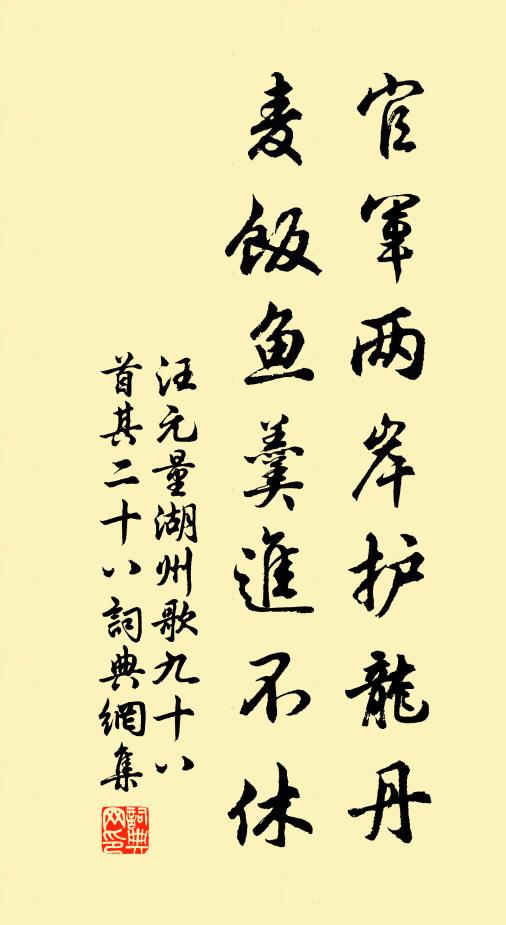 官军两岸护龍丹
麦飯鱼羹進不休
汪元量湖州歌九十八
首其二十八詞典網集
詞典網印